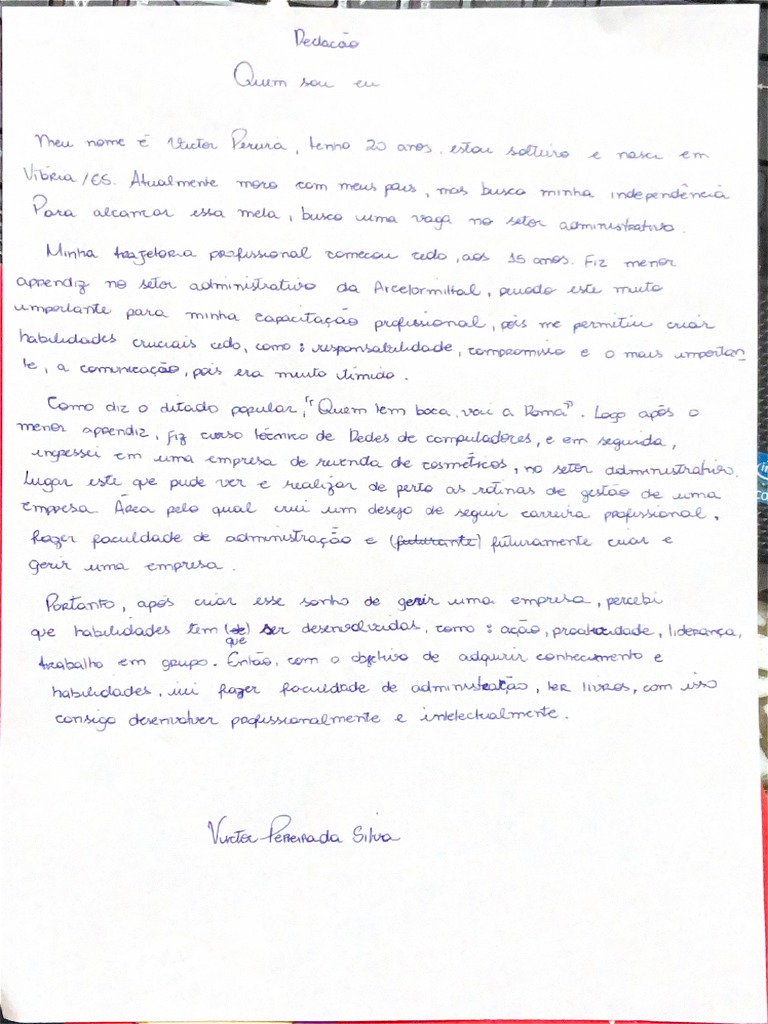 Redacão
Quem sou eu
Meu nome é Victor Pereira, tenho 20 anos, estou solteiro e nasci em
Vitória/ES. Atualmente moro com meus pais, mas busco minha independência
Para alcancar essa meta, busco uma vaga no setor administrativo.
Minha trajetoria profissional comecou cedo, aos 15 anos. Fiz menor
appendiz no setor administrativo da Arcelormittal, sendo este muito
importante para minha capacitação profissional, pois me permitiu criar
habilidades cruciais cedo, como: responsabilidade, compromisso e o mais importan
te, a comunicação, pois era muito tímido.
Como diz o ditado popular, "Quem tem boca, vai a Roma". Logo após o
menor appendiz, fiz curso técnico de Redes de computadores, e em seguida,
ingressei em uma empresa de revenda de cosméticos, no setor administrativo.
Lugar este que pude ver e realizar de perto as rotinas de gestão de uma
empresa. Área pelo qual criei um desejo de seguir carreira profissional,
fazer faculdade de administração e (futurante) futuramente criar e
gerir uma empresa.
Portanto, após criar esse sonho de gerir uma empresa, percebi
que habilidades tem (de) que ser desenvolvidas, como: ação, proatividade, liderança,
trabalho em grupo. Então, com o objetivo de adquirir conhecimento e
habilidades, irei fazer faculdade de administração, ler livros, com isso
consigo desenvolver profissionalmente e intelectualmente.
Victor Pereira da Silva
intel